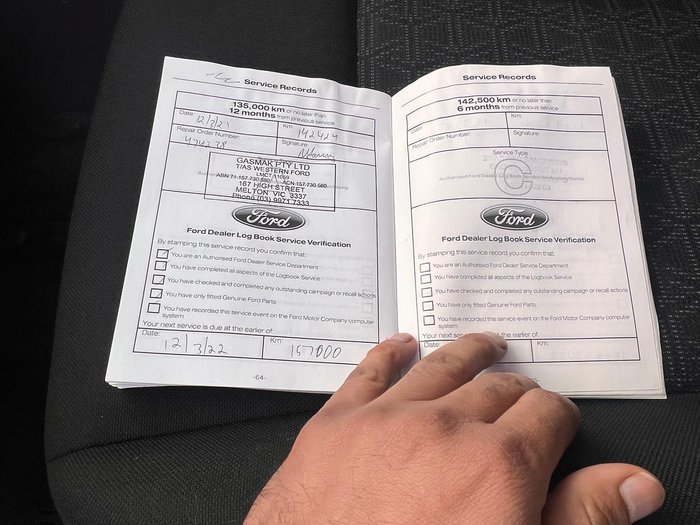 Service Records
135,000 km or no later than
12 months from previous service
Date: 12/3/21
Km: 142424
Repair Order Number: 474238
Signature:
GASMAK PTY LTD
T/AS WESTERN FORD
LMCT A1059
ABN 71 157 730 580 ACN 157 730 580
167 HIGH STREET
MELTON VIC 3337
Phone (03) 9971 7333
Ford
Ford Dealer Log Book Service Verification
By stamping this service record you confirm that:
You are an Authorised Ford Dealer Service Department
You have completed all aspects of the Logbook Service
You have checked and completed any outstanding campaign or recall actions
You have only fitted Genuine Ford Parts
You have recorded this service event on the Ford Motor Company computer
system
Your next service is due at the earlier of:
Date: 12/3/22
Km: 157000
-64-
Service Records
142,500 km or no later than
6 months from previous service
Date:
Km:
Repair Order Number:
Signature:
Service Type
C
Authorised Ford Dealer Log Book Service Verification Stamp
Ford
Ford Dealer Log Book Service Verification
By stamping this service record you confirm that:
You are an Authorised Ford Dealer Service Department
You have completed all aspects of the Logbook Service
You have checked and completed any outstanding campaign or recall actions
You have only fitted Genuine Ford Parts
You have recorded this service event on the Ford Motor Company computer
system
Your next the earlier of:
Date:
Km: